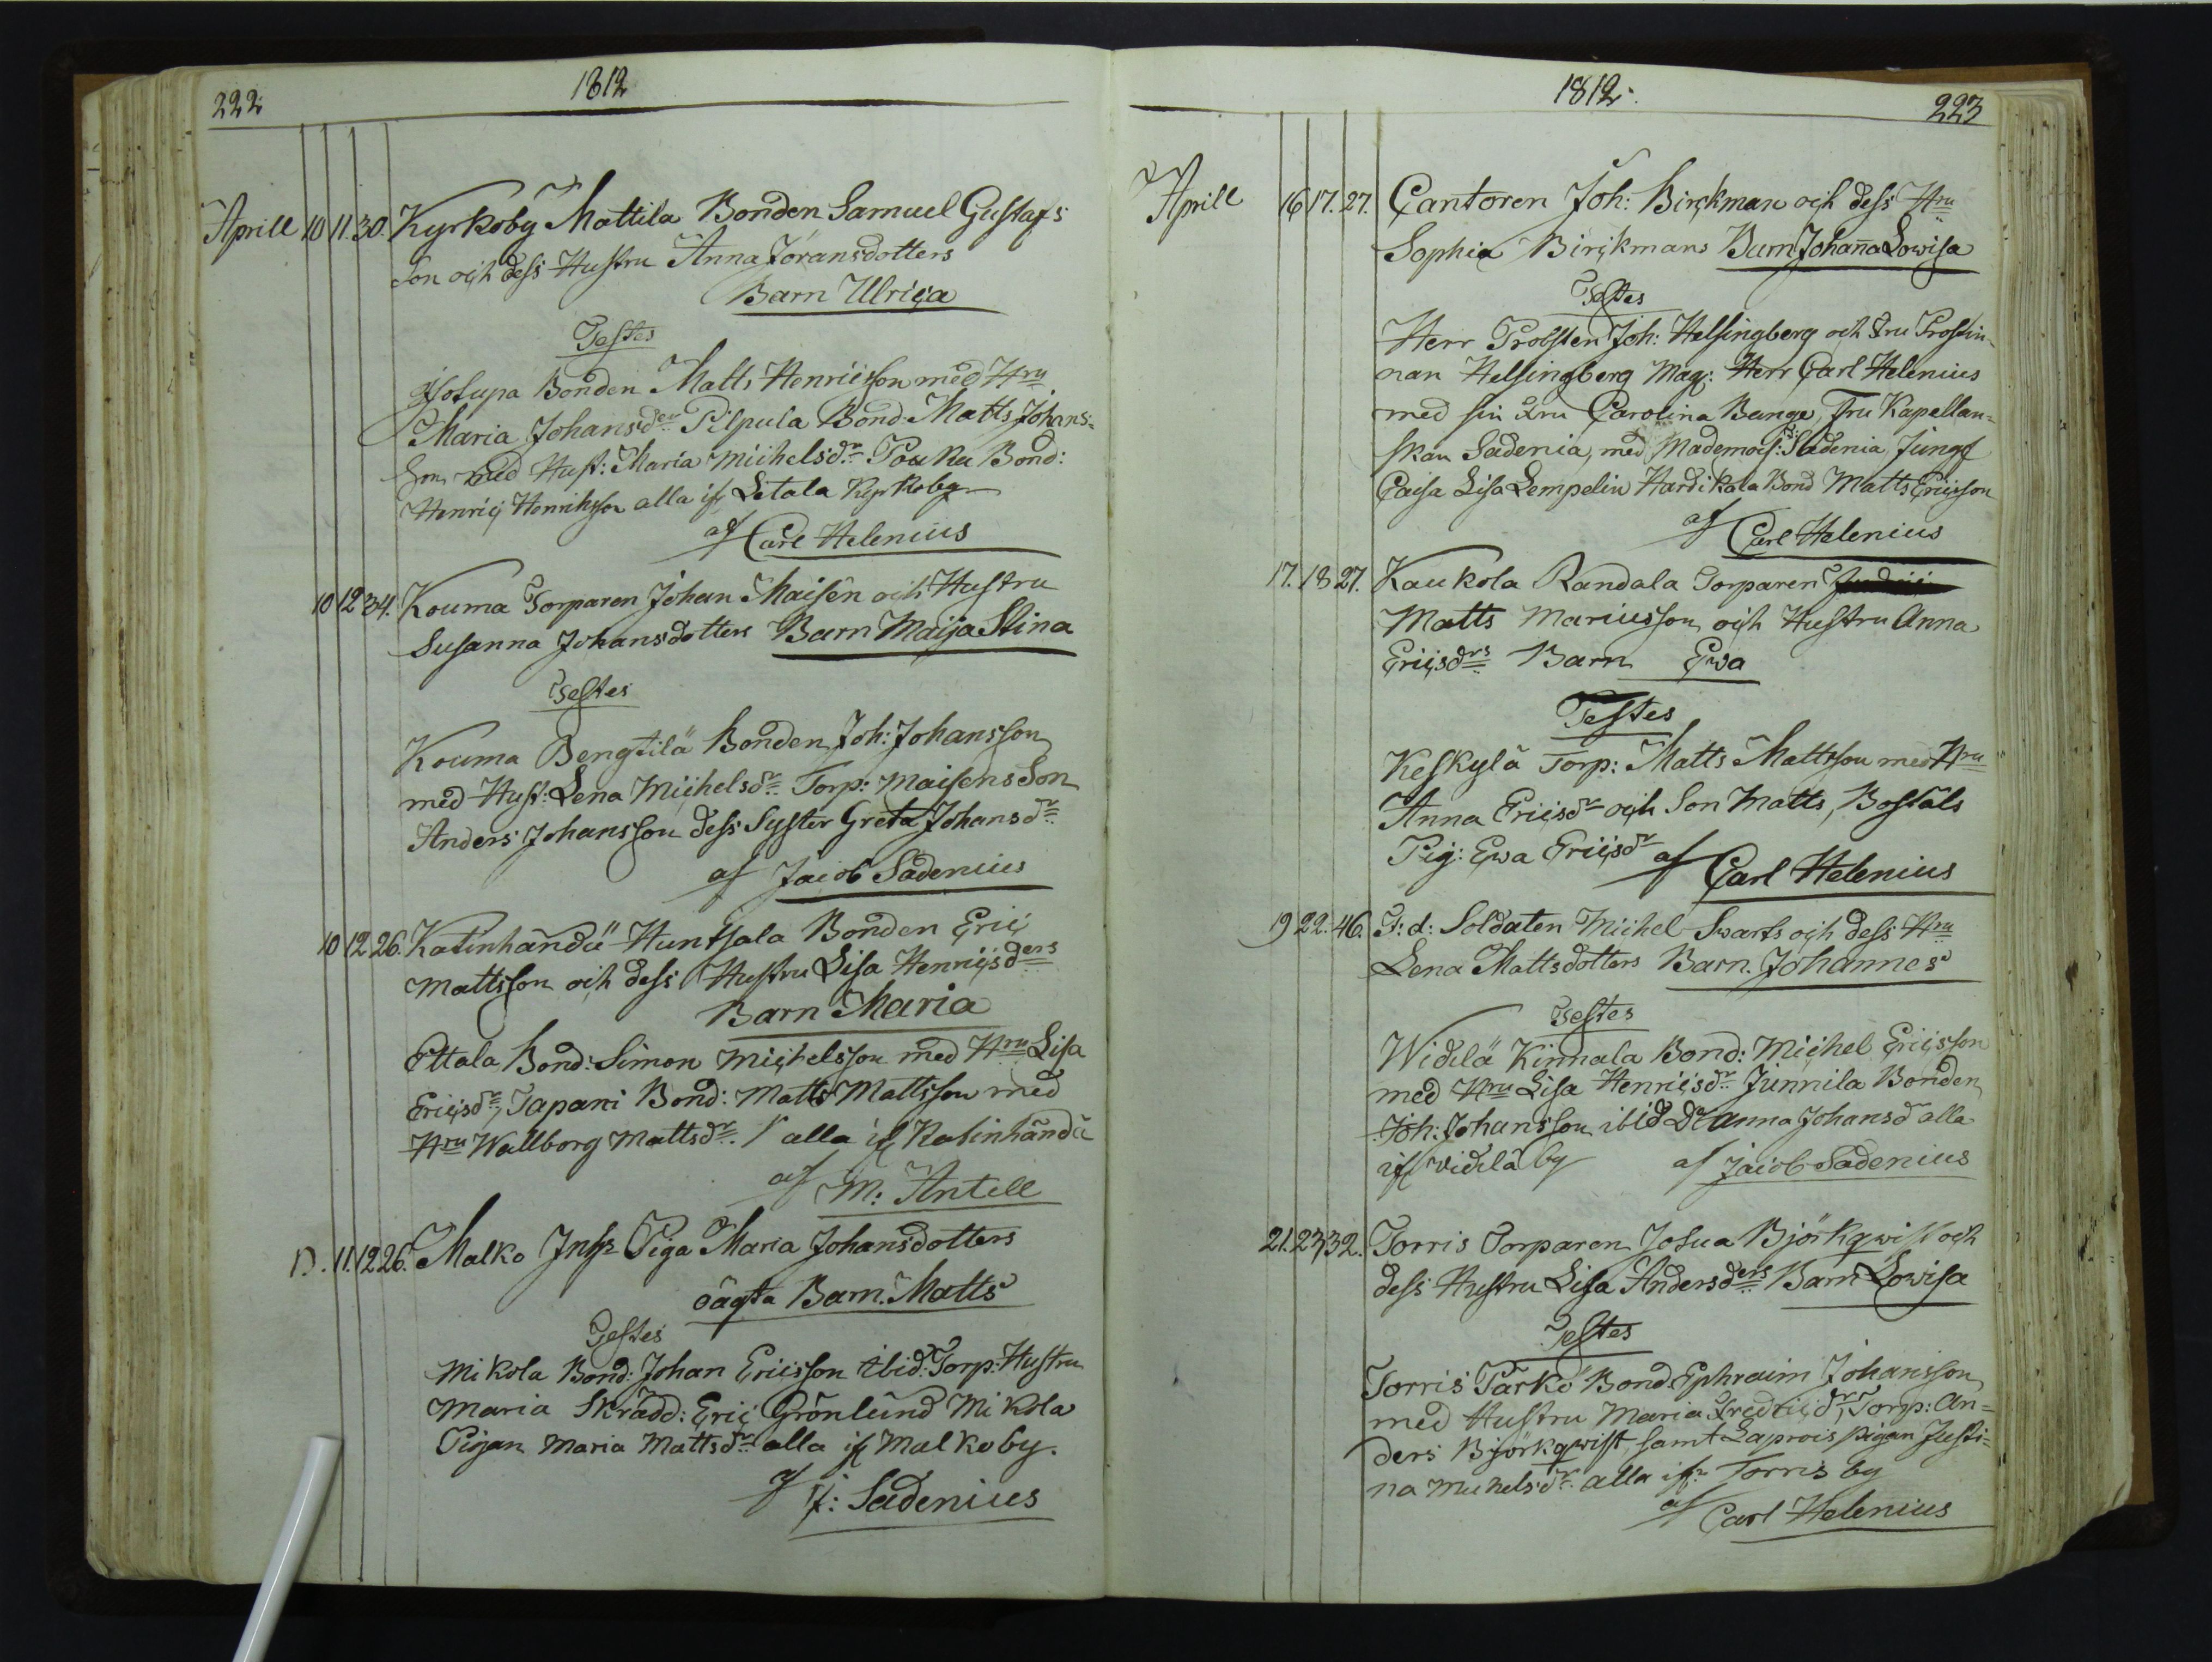 222
1812
Aprill 10 11. 30. Kyrkoby Mattila Bonden Samuel Gustafs
son och dess Hustru Anna Jöransdotters
Barn Ulrica
Testes
Bonden Matts Henricsson med Hru
Maria Johansder Pilpula Bond. Matts Johans=
son med Hust: Maria Michelsdr Pouka Bond:
Henric Henriksson alla if Letala Kyrkoby
af Carl Helenius
10 12 34. Kouma Torparen Johan Maisën och Hustru
Susanna Johansdotters Barn Maija Stina
Testes
Kouma Bengtilä Bonden Joh: Johansson
med Hust: Lena Michelsdr Torp: Maisens Son
Anders Johansson dess Syster Greta Johansdr
af Jacob Sadenius
10 12 26. Katinhändä Huntsala Bonden Eric
Mattsson och dess Hustru Lisa Henricsders
Barn Maria
Ettala Bond: Simon Michelsson med Hru Lisa
Ericsdr, Tapani Bond: Matts Mattsson med
Hru Wallborg Mattsdr. alla if Katinhändä
af M: Antell
D. 11. 12 26. Malko Inhs Piga Maria Johansdotters
oägta Barn. Matts
Testes
Mikola Bond: Johan Ericsson ibid: Torp: Hustru
Maria Skrädd: Eric Grönlund Mikola
Pigan Maria Mattsdr alla if Malkoby.
af J: Sadenius
1812.
223
Aprill 16 17. 27. Cantoren Joh: Birckman och dess Hru
Sophia Birckmans Barn Johanna Lowisa
Testes
Herr Probsten Joh: Helsingberg och Fru Prostin-
nan Helsingberg Mag: Herr Carl Helenius
med sin Fru Carolina Bange, Fru Kapellan-
skan Sadenia, med Mademois: Sadenia Jungf
Caisa Lisa Lempelin Hardikala Bond Matts Ericsson
af Carl Helenius
17. 18 27. Kaukola Randala Torparen
Matts Mariusson och Hustru Anna
Ericsdrs Barn Ewa
Testes
Keskylä Torp: Matts Mattsson med Hru
Anna Ericsdr och Son Matts, Boställs
Pig: Ewa Ericsdr af Carl Helenius
19 22. 46. F: d: Soldaten Michel Swarts och dess Hru
Lena Mattsdotters Barn. Johannes
Testes
Widilä Kinnala Bond: Michel Ericsson
med Hru Lisa Henricsdr Junnila Bonden
Joh: Johansson ibid Dr Anna Johansd alla
if Vidilä by af Jacob Sadenius
21. 23 32. Torris Torparen Josua Björkqwist och
dess Hustru Lisa Andersders Barn Lowisa
Testes
Torris Parko Bond. Ephraim Johansson
med Hustru Maria Fredricdr, Torp: An=
ders Björkqwist, samt Laprois pigan Justi=
na Michelsdr alla ifr Torris by
af Carl Helenius